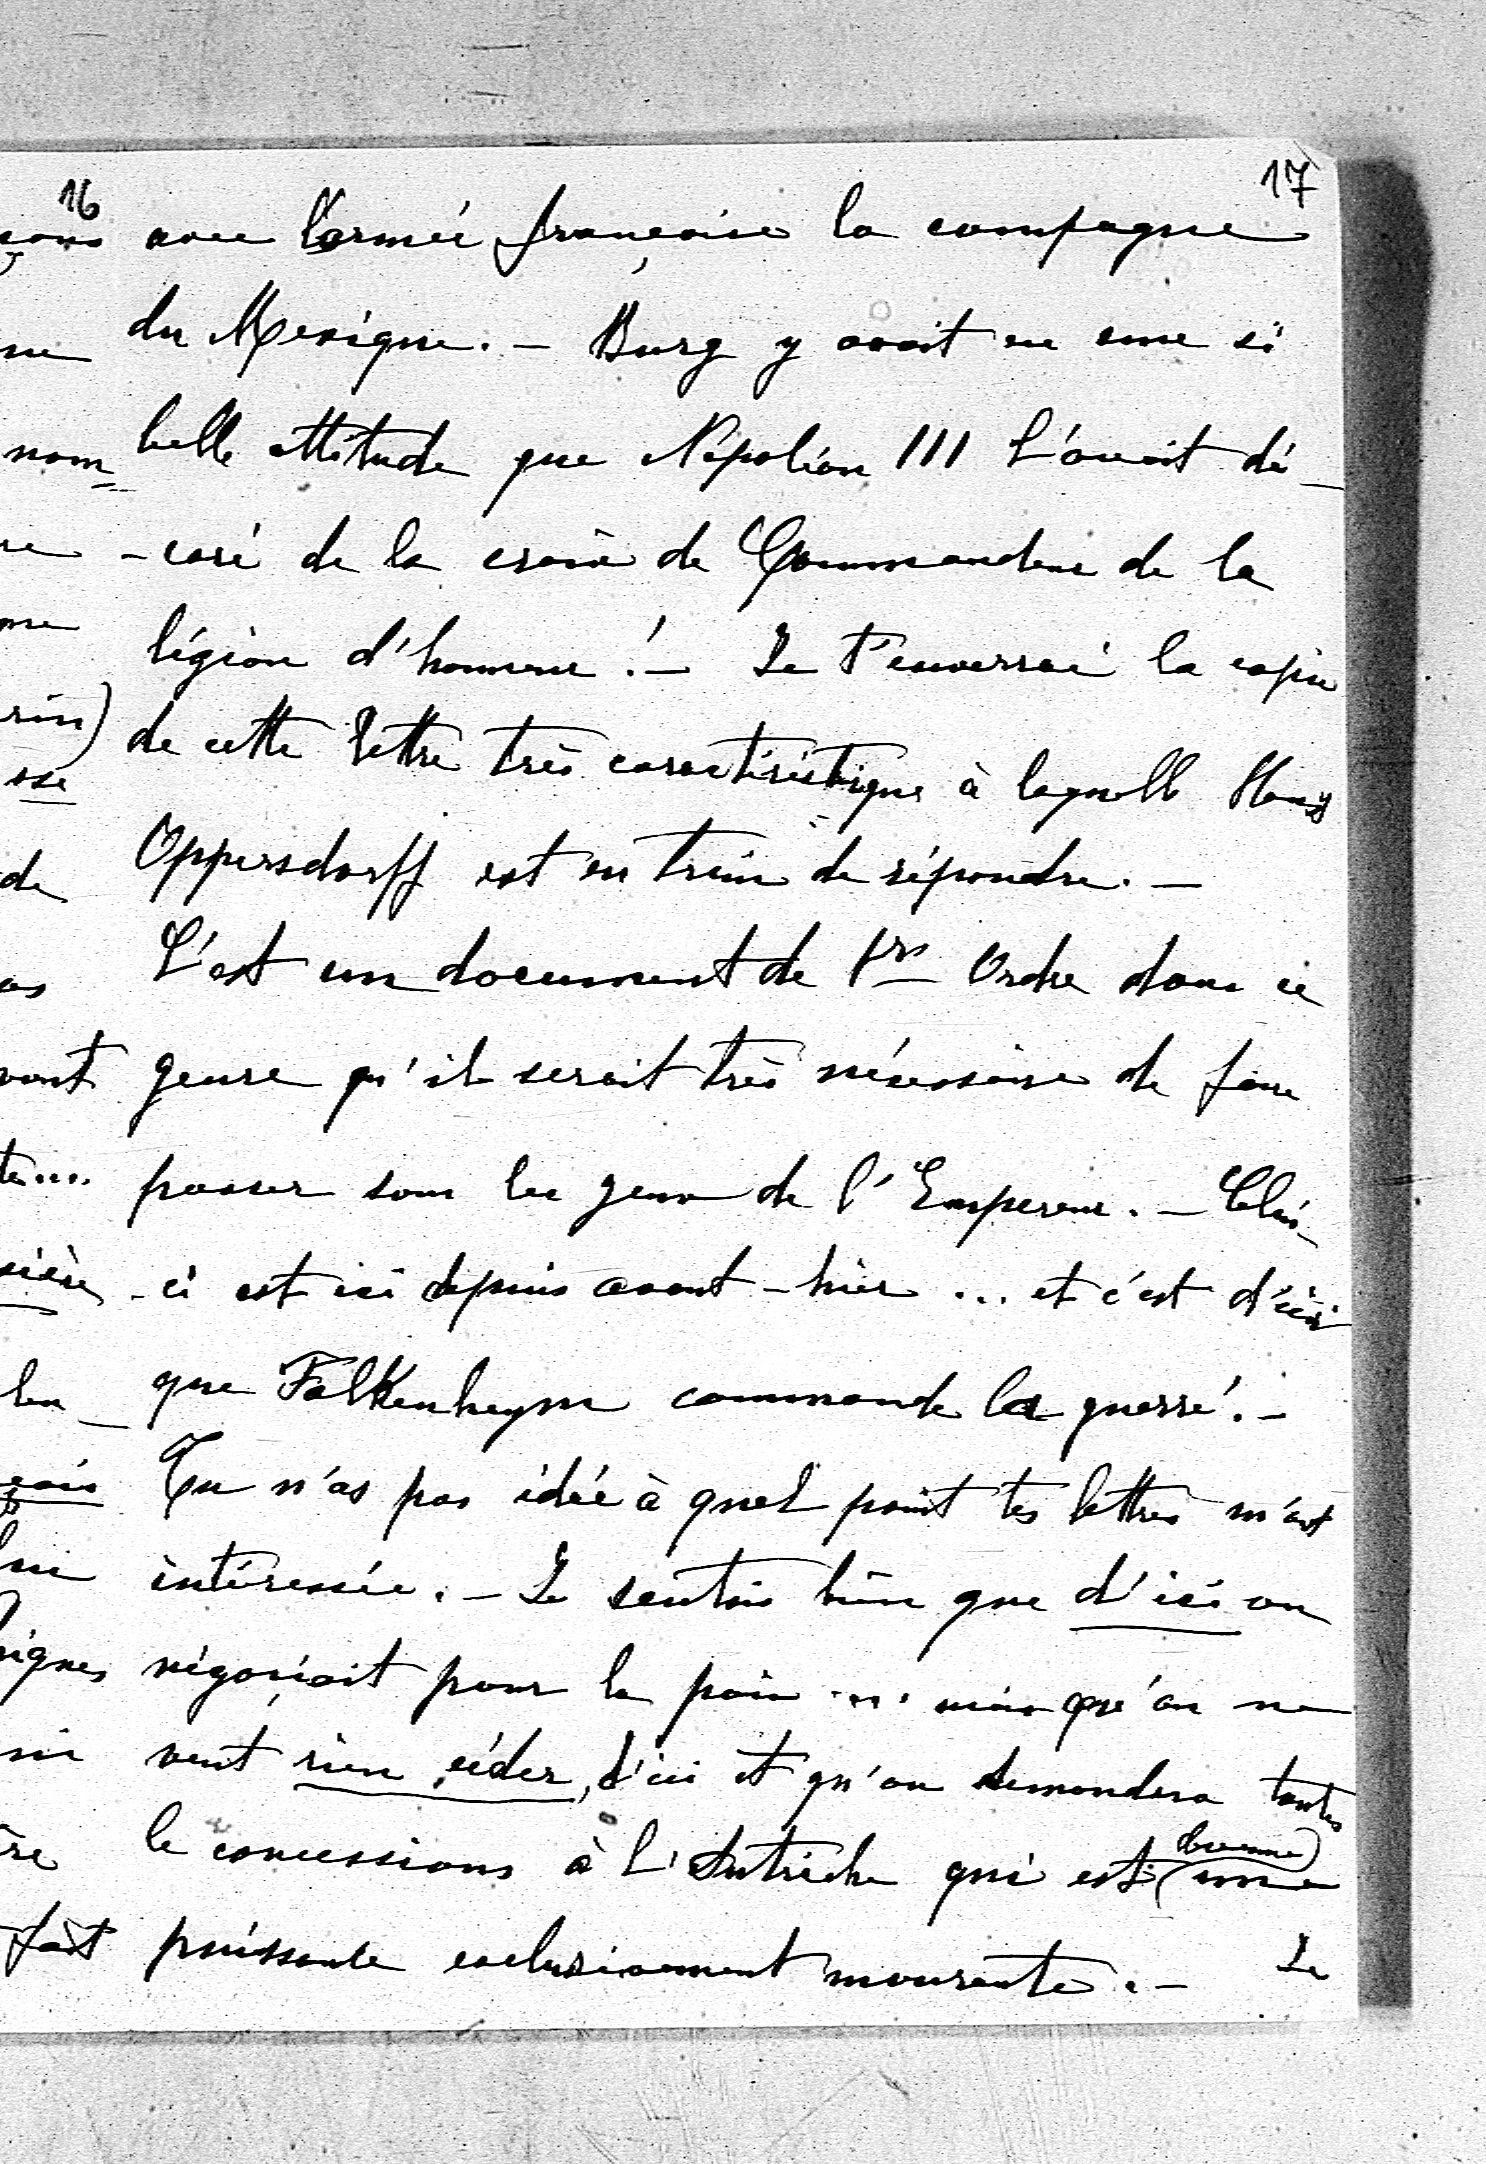 16
17
avec l'armée française la campagne
du Mexique. - Burg y avait eu une si
belle attitude que Napoléon III l'avait dé-
-coré de la croix de Commandeur de la
légion d'honneur! - Je t'enverrai la copie
de cette lettre très caractéristique à laquelle Hans
Oppersdorff est en train de répondre. -
C'est un document de 1r Ordre dans ce
genre qu'il serait très nécessaire de faire
passer sous les yeux de l'Empereur. -
-ci est ici depuis avant-hier ... et c'est d'ici
que Falkenheyn commande la guerre! -
Tu n'as pas idée à quel point tes lettres m'ont
intéressée. - Je sentais bien que d'ici on
négociait pour la paix ... mais qu'on ne
veut rien céder, d'ici et qu'on demandera toutes
le concessions à l'Autriche qui est (une
puissante exclusivement mourante. - Je
nom
de
vont
fait